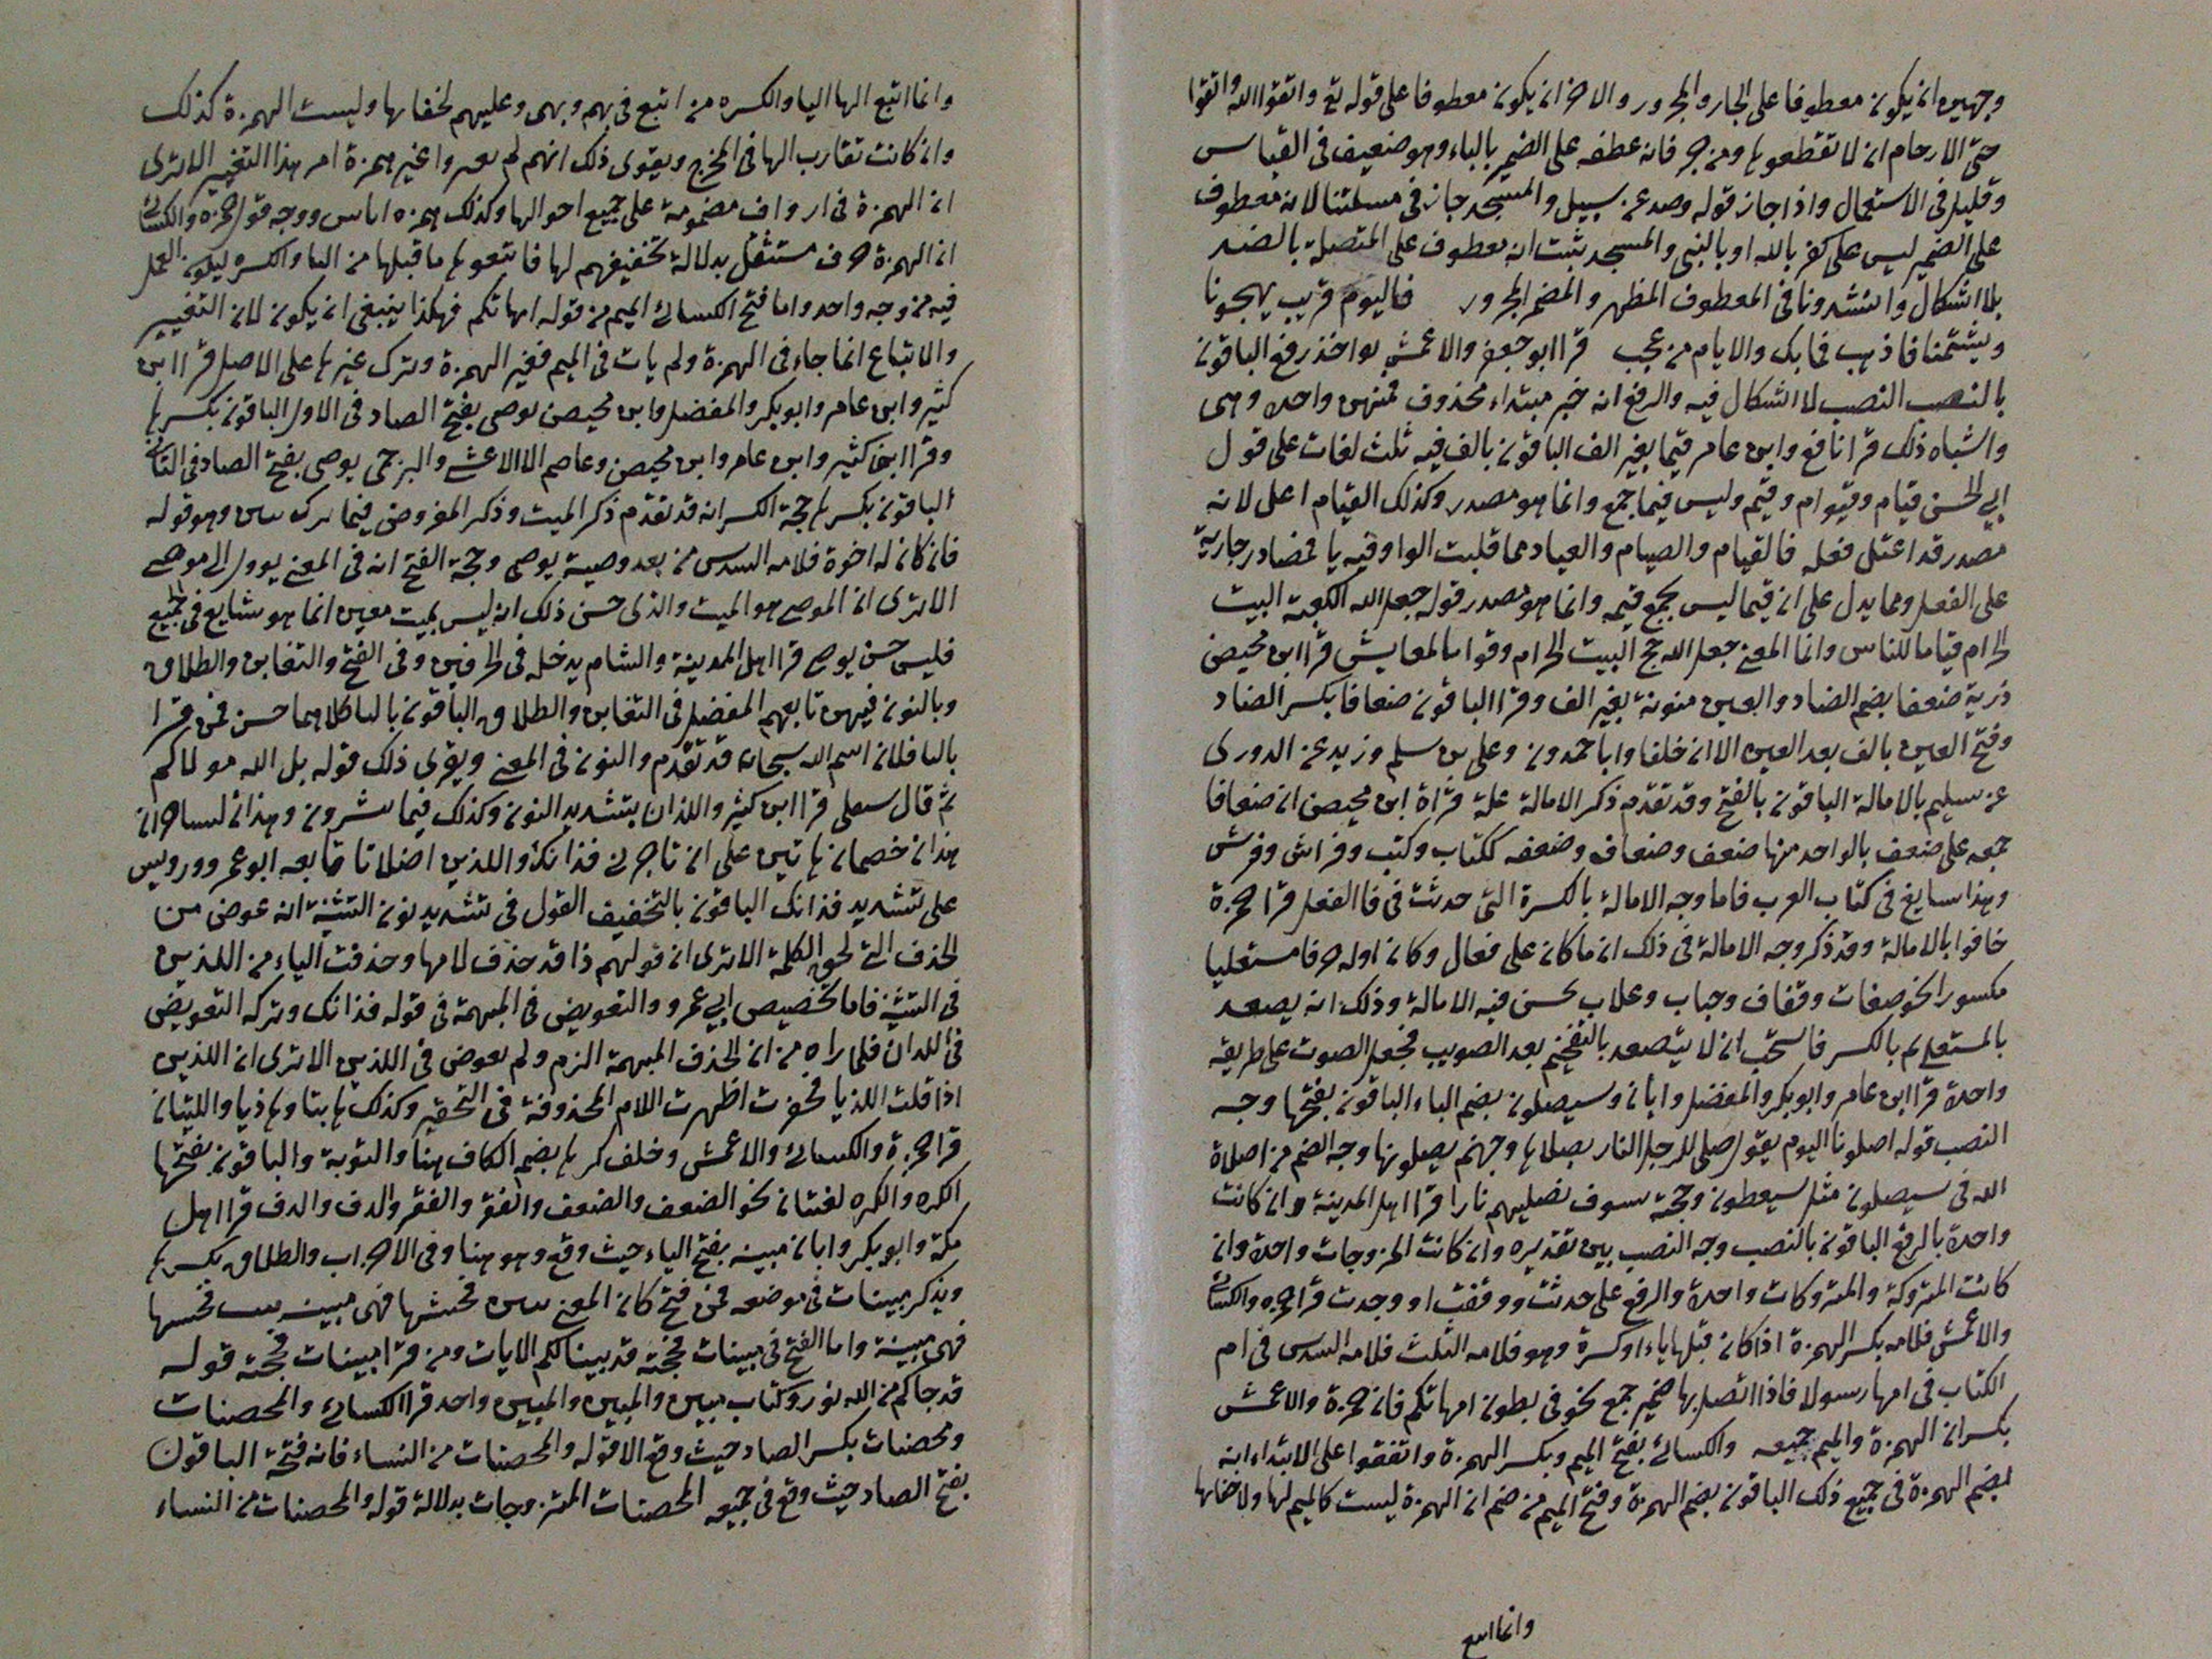 وجهين ان يكون معطوفا على الجار والمجرور والاخر ان يكون معطوفا على قوله تع واتقوا الله واتقوا
حق الارحام ان لا تقطعوها ومن جر فانه عطفه على الضمير بالباء وهو ضعيف في القياس
وقليل في الاستعمال واذا جاز قوله وصد عن سبيل والمسجد جاز في مسلتنا لانه معطوف
على الضمير ليس على كفر بالله او بالنبى والمسجد يثبت انه معطوف على المتصلة بالضد
بلا اشكال وانشدونا في المعطوف المظهر والمضمر المجرور فاليوم قريب يهجونا
ويشتمنا فاذهب فما بك والايام من عجب قرا ابو جعفر والاعمش بواحد رفع الباقون
بالنصب النصب لا اشكال فيه والرفع انه خبر مبتداء محذوف فمنهن واحدة وهى
واشباه ذلك قرا نافع وابن عامر قيما بغير الف الباقون بالف فيه ثلث لغات على قول
ابي الحسن قيام وقيوام وقيم وليس قيما جمع وانما هو مصدر وكذلك القيام اعل لانه
مصدر قد اعتل فعله فالقيام والصيام والعياد مما قلبت الواو فيه يا فمصادر جارية
على الفعل ومما يدل على ان قيما ليس بجمع قيمه وانما هو مصدر قوله جعل الله الكعبة البيت
الحرام قياما للناس وانما المعنى جعل الله حج البيت الحرام وقواما لمعايش قرا ابن محيصن
ذرية ضعفا بضم الضاد والعين منونة بغير الف وقرا الباقون ضعافا بكسر الضاد
وفتح العين بالف بعد العين الا ان خلفا وابا حمدون وعلى بن سلم وزيد عن الدورى
عن سليم بالامالة الباقون بالفتح وقد تقدم ذكر الامالة علة قراة ابن محيصن ان ضعافا
جمعه على ضعف بالواحد منها ضعف وضعاف وضعفه ككتاب وكتب وفراش وفرش
وهذا سايغ في كتاب العرب فاما وجه الامالة بالكسرة التى حدثت في فا الفعل قرا حمزة
خافوا بالامالة وقد ذكر وجه الامالة في ذلك ان ما كان على فعال وكان اوله حرفا مستعليا
مكسورا نحو صفات وقفاف وجباب وعلاب يحسن فيه الامالة وذلك انه يصعد
بالمستعلى ثم بالكسر فاستحب ان لا يتصعد بالتفخيم بعد التصويب فجعل الصوت على طريقة
واحدة قرا ابن عامر وابو بكر والمفضل وابان وسيصلون بضم الياء الباقون بفتحها وجه
النصب قوله اصلونا اليوم يقول صلى للرجل النار يصلاها وجهنم يصلونها وجه الضم من اصلاة
الله في سيصلون مثل سيعطون وحجته سوف نصليهم نارا قرا اهل المدينة وان كانت
واحدة بالرفع الباقون بالنصب وجه النصب بين تقديره وان كانت المزوجات واحدة وان
كانت المتروكة والمتروكات واحدة والرفع على حدثت ووقفت او وجدت قرا حمزه والكسائي
والاعمش فلامه بكسر الهمزة اذا كان قبلها ياء او كسرة وهو فلامه الثلث فلامه السدس في ام
الكتاب في امها رسولا فاذا اتصل بها ضمير جمع نحو في بطون امهاتكم فان حمزة والاعمش
بكسران الهمزة والميم جميعه والكسائى بفتح الميم وبكسر الهمزة واتفقوا على الابتداء انه
بضم الهمزة في جميع ذلك الباقون بضم الهمزة وفتح الميم من ضم ان الهمزة ليست كالميم لها ولا خفايها
وانما اتبع
وانما اتبع الها اليا والكسره من اتبع في بهم وبهى وعليهم لخفايها وليست الهمزة كذلك
وان كانت تقارب الها في المخرج ويقوى ذلك انهم لم يعبروا غير همزة ام هذا التغيير الا ترى
ان الهمزة في ار واف مضمومة على جميع احوالها وكذلك همزه اناس ووجه قول حمزه والكسائي
ان الهمزة حرف مستثقل بدلالة تخفيفهم لها فاتبعوها ما قبلها من اليا والكسر ليكون العمل
فيه من وجه واحد واما فتح الكسائى الميم من قوله امهاتكم فهكذا ينبغى ان يكون لان التغيير
والاتباع انما جاء في الهمزة ولم يات في الميم فغير الهمزة وترك غيرها على الاصل قرا ابن
كثير وابن عامر وابو بكر والمفضل وابن محيصن يوصى بفتح الصاد في الاول الباقون بكسرها
وقرا ابن كثير وابن عامر وابن محيصن وعاصم الا الاعشى والبرجمى يوصى بفتح الصاد في الثاني
الباقون بكسرها حجة الكسر انه قد تقدم ذكر الميت وذكر المفروض فيما ترك وهو قوله
فان كان له اخوة فلامه السدس من بعد وصية يوصى وحجة الفتح انه في المعنى يوول الى موصى
الا ترى ان الموصى هو الميت والذى حسن ذلك انه ليس بميت معين انما هو شايع في الجميع
فليس حسن يوصى قرا اهل المدينة والشام يدخله في الحرفين وفي الفتح والتغابن والطلاق
وبالنون فيهن تابعهم المفضل في التغابن والطلاق الباقون باليا كلاهما حسن فمن قرا
باليا فلان اسم الله سبحانه قد تقدم والنون في المعنى ويقوى ذلك قوله بل الله مولاكم
ثم قال سنلقى قرا ابن كثير واللذان بتشديد النون وكذلك فيما تبشرون وهذان لساحران
هذان خصمان هاتين على ان تاجرنى فذانك واللذين اضلانا تابعه ابو عمرو ورويس
على تشديد فذانك الباقون بالتخفيف القول في تشديد نون التثنية انه عوض من
الحذف التى لحق الكلمة الا ترى ان قولهم ذا قد حذف لامها وحذفت الياء من اللذين
في التثنية فاما تخصيص ابي عمرو والتعويض في المبهمة في قوله فذانك وتركه التعويض
في اللذان فلما راه من ان الحذف المبهمة الزم ولم يعوض في اللذين الا ترى ان اللذين
اذا قلت اللذيا فحقرت اظهرت اللام المحذوفة في التحقير وكذلك هاتيا وهاذيا واللتيان
قرا حمزة والكسائى والاعمش وخلف كرها بضم الكاف هنا والتوبة والباقون بفتحها
الكره والكره لغتان نحو الضعف والضعف والفقر والفقر والدف والدف قرا اهل
مكة وابو بكر وابان مبينه بفتح الياء حيث وقع وهو هنا وفي الاحزاب والطلاق بكسرها
ويذكر مبينات في موضعه فمن فتح كان المعنى فحشها فهى مبينه فحشها
فهى مبينة واما الفتح في مبينات فحجته قد بينا لكم الايات ومن قرا مبينات فحجته قوله
قد جاكم من الله نور وكتاب مبين والمبين والمبين واحد قرا الكسائى والمحصنات
ومحصنات بكسر الصاد حيث وقع الا قوله والمحصنات من النساء فانه فتحة الباقون
بفتح الصاد حيث وقع في جميعه المحصنات المتزوجات بدلالة قوله والمحصنات من النساء